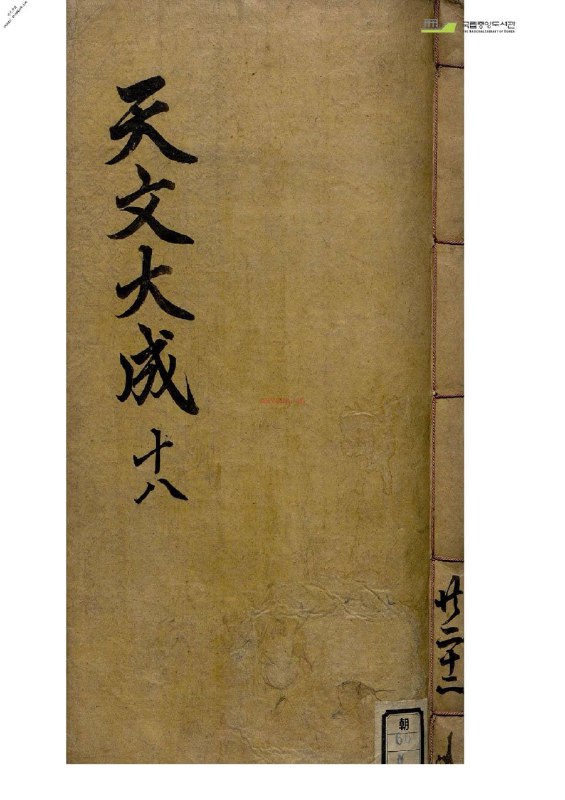 天文大成
十八
共二十二
朝
60
국립중앙도서관
THE NATIONAL LIBRARY OF KOREA